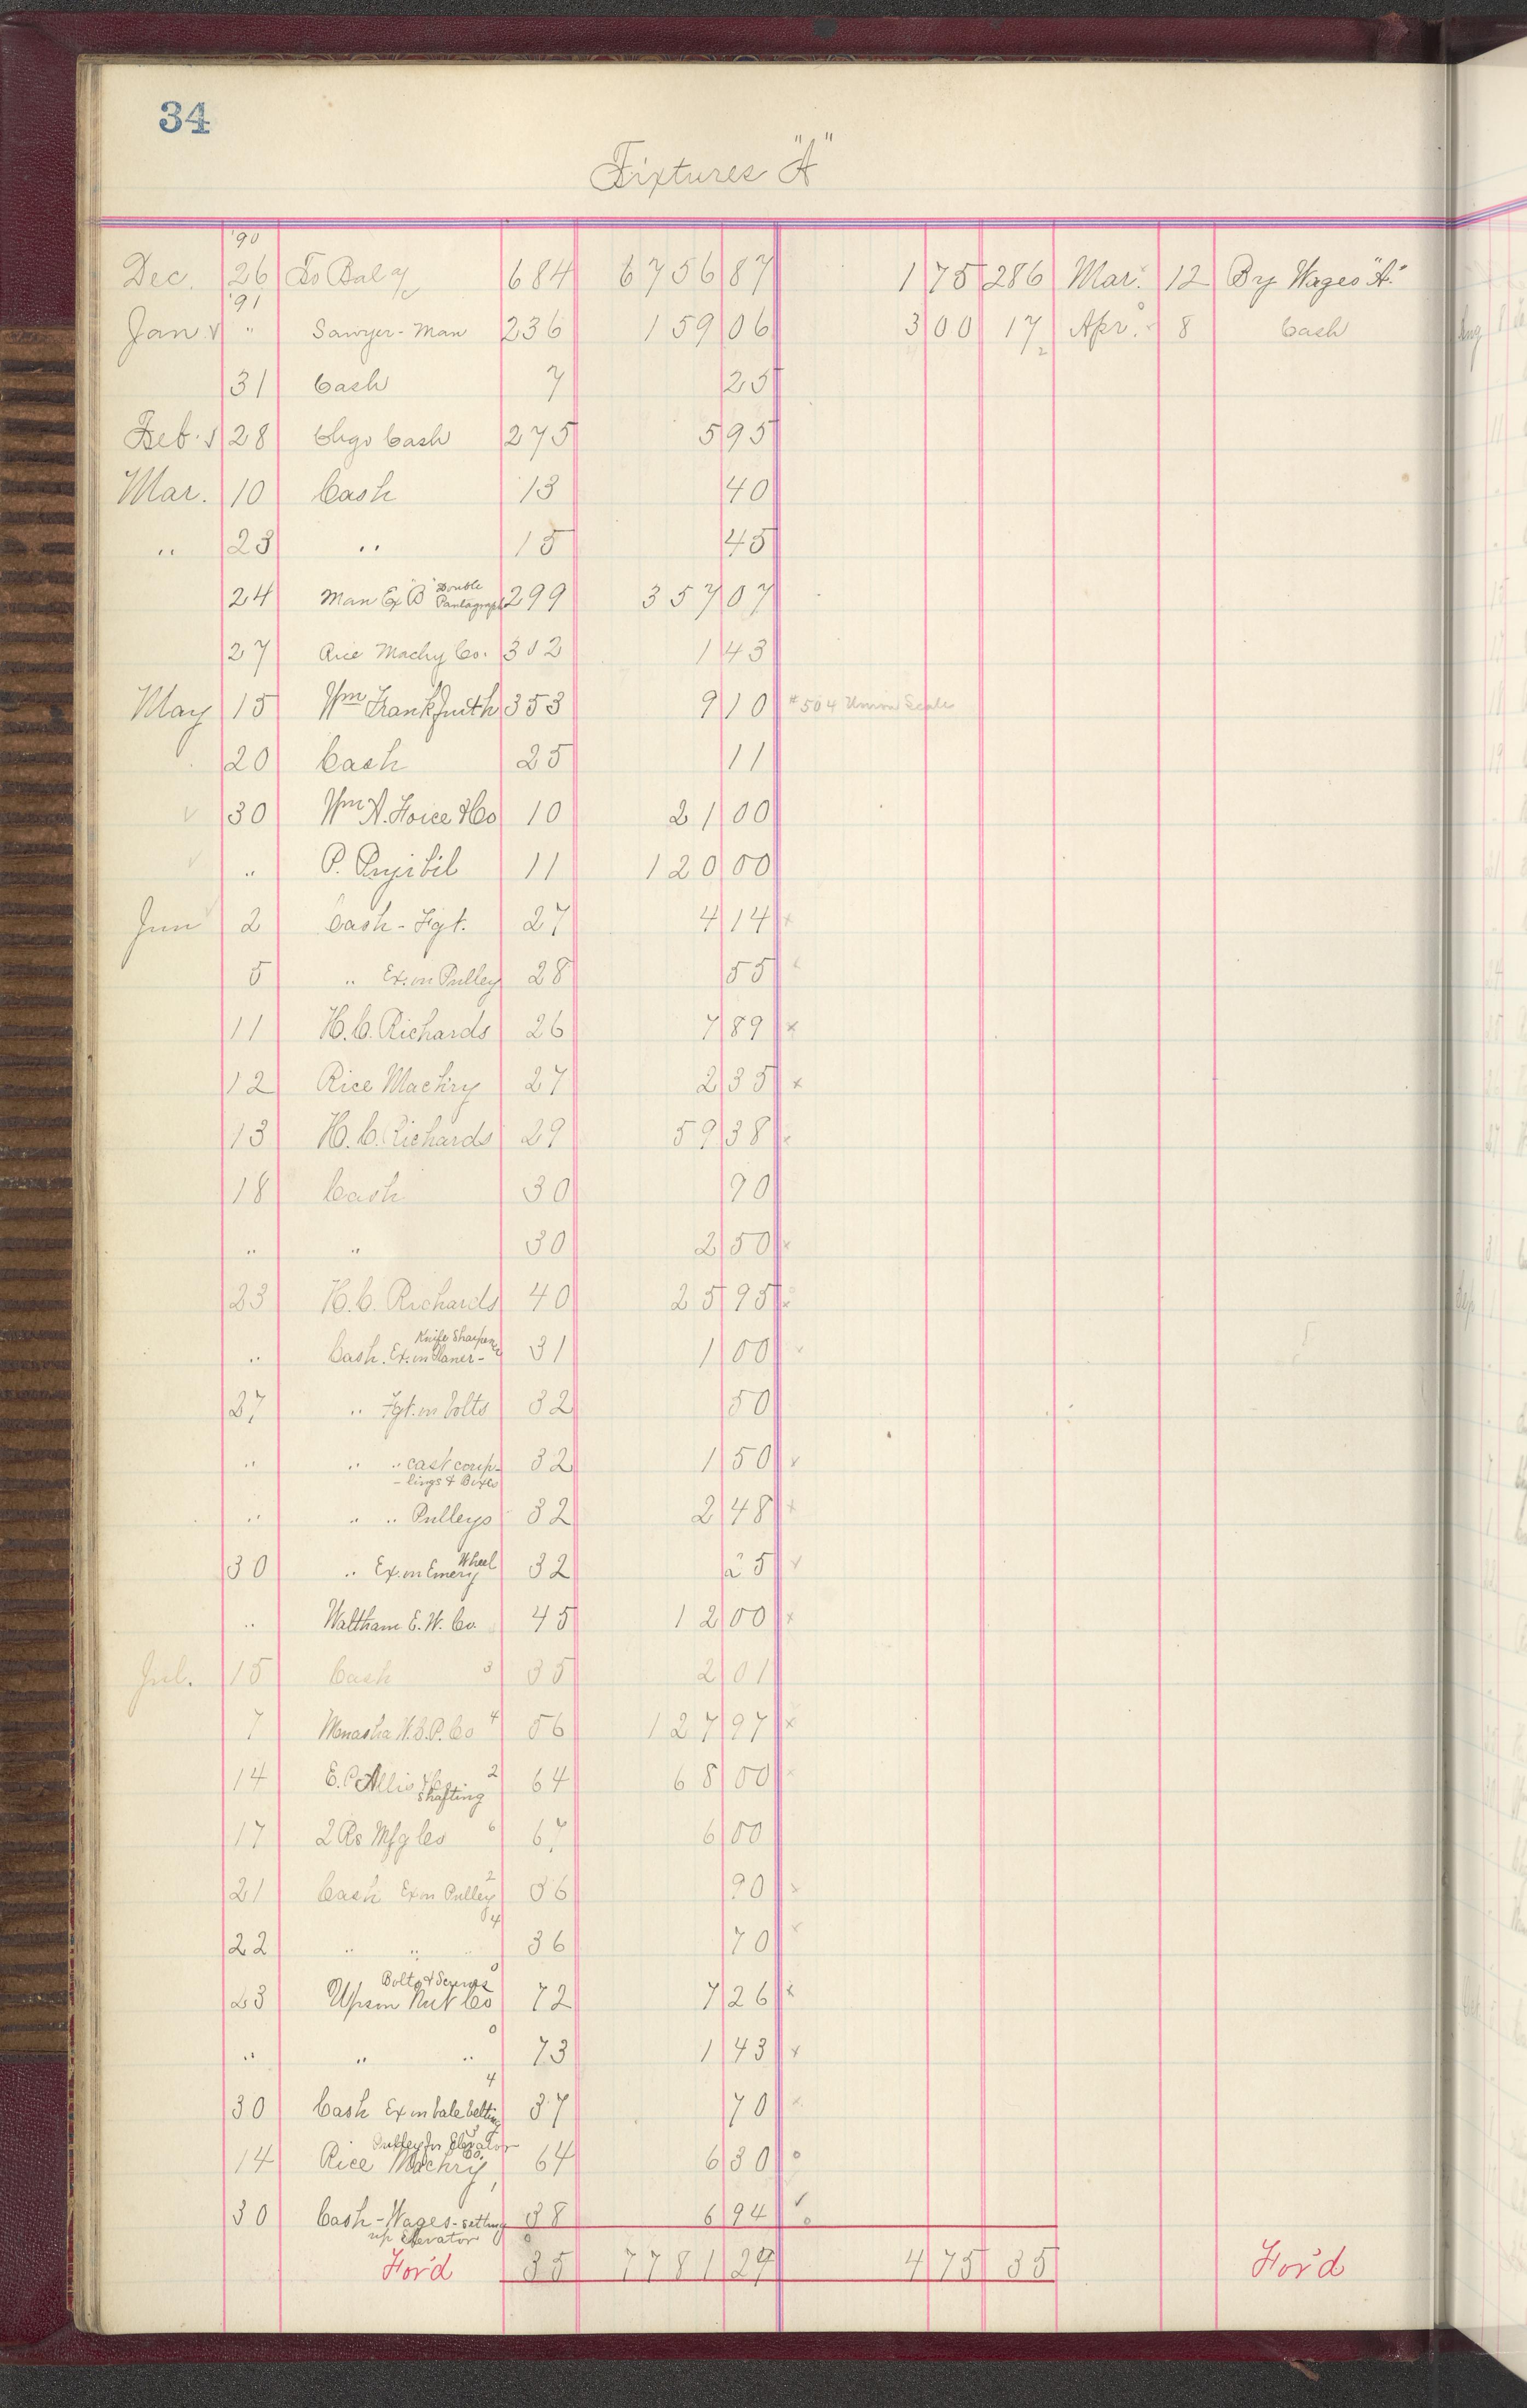 34
Fixtures "A"
'90
Dec. 26 To Bal a/c 684 6756 87 1 75 286 Mar. 12 By Wages "A"
'91
Jan " Sawyer-Man 236 159 06 3 00 17 Apr. 8 Cash
2
31 Cash 7 25
Feb. 28 Chgo Cash 275 5 95
Mar. 10 Cash 13 40
" 23 " 15 45
24 Man Ex "B" Double Pantagraph 299 357 07
27 Rice Machy Co. 302 1 43
May 15 Wm Frankfurth 353 9 10 #504 Union Scale
20 Cash 25 11
30 Wm A. & Co 10 21 00
" P. Pryibil 11 120 00
Jun 2 Cash - Fgt. 27 4 14 x
5 " Ex. on Pulley 28 55
11 H. C. Richards 26 7 89 x
12 Rice Machry 27 2 35 x
13 H. C. Richards 29 59 38 x
18 Cash 30 90
" " 30 2 50 x
23 H. C. Richards 40 25 95 x
" Cash. Ex. on Planer - Knife Sharpener 31 1 00
27 " Fgt. on bolts 32 50
" " " cast coup- 32 1 50 x
- lings & Boxes
" " " Pulleys 32 2 48 x
30 " Ex. on Emery Wheel 32 25 x
" Waltham E. W. Co. 45 12 00 x
Jul. 15 Cash 3 35 2 01
7 Menasha W. S. P. Co 4 56 127 97 x
14 E. P. Allis & Co 2 64 68 00 x
Shafting
17 2 Rs Mfg Co 6 67 6 00
21 Cash Ex on Pulley 2 36 90 x
4
22 " " " 36 70 x
Bolts & Screws 0
23 Upson Nut Co 72 7 26 x
0
" " " 73 1 43 x
4
30 Cash Ex on bale belting 37 70 x
Pulley for Elevator
14 Rice Machry Co. 64 6 30 o
30 Cash - Wages - setting 38 6 94 o
up Elevator 0
For'd 35 7781 27 4 75 35 For'd